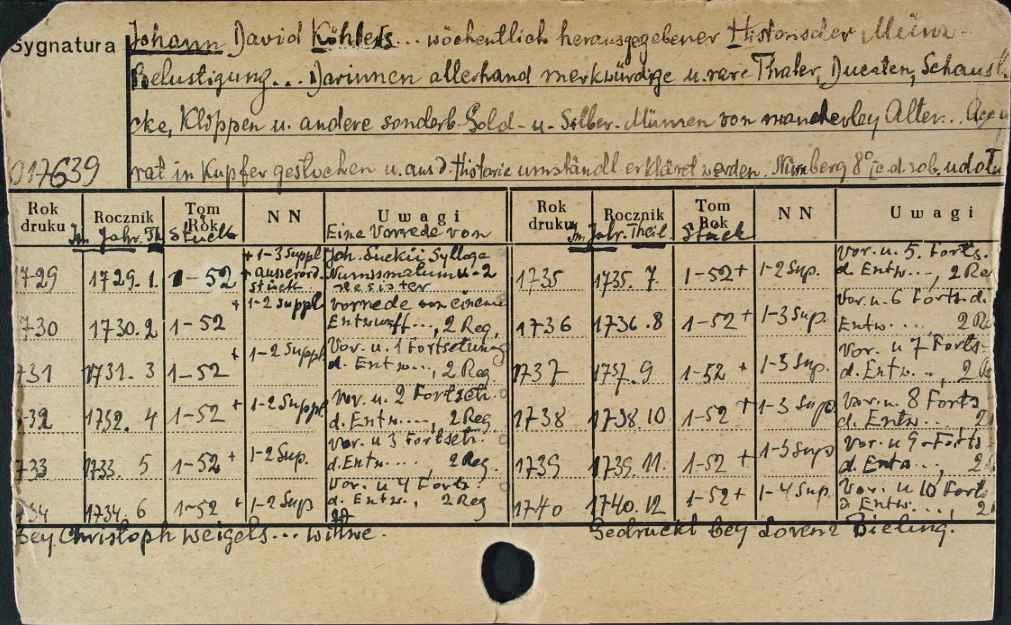 Sygnatura Johann David Köhlers... wöchentlich herausgegebener Historischer Münz-
Belustigung... Darinnen allerhand merkwürdige u. rare Thaler, Ducaten, Schaust.
cke, Klippen u. andere sonderb. Gold- u- Silber-Münzen von mancherley Alter...
017639 rat in Kupfer gestochen u. aus d. Historie umständl. erklärt werden. Nürnberg 8°
Rok druku Rocznik Tom Rok N N Uwagi Rok druku Rocznik Tom Rok N N Uwagi
Im Jahr. Th. Stück Eine Vorrede von Im Jahr. Theil Stück
1729 1729. 1. 1-52 + 1-3 Suppl + ausserord. Stück Joh. Suckii Sylloge Numismatum u. 2 Register 1735 1735. 7. 1-52 + 1-2 Sup. Vor. u. 5. Forts. d. Entw..., 2 Re
1730 1730. 2 1-52 + 1-2 Suppl vorrede von einem Entwurff..., 2 Reg. 1736 1736. 8 1-52 + 1-3 Sup. Vor. u. 6 Forts. d. Entw...., 2 R
731 1731. 3 1-52 + 1-2 Suppl Vor. u. 1 Fortsetzung d. Entw..., 2 Reg 1737 1737. 9 1-52 + 1-3 Sup. Vor. u 7 Forts. d. Entw..., 2
732 1732. 4 1-52 + 1-2 Suppl Vor. u. 2 Fortsetz. d. Entw...., 2 Reg 1738 1738. 10 1-52 + 1-3 Sup. Vor. u. 8 Forts d. Entw... 2
733 1733. 5 1-52 + 1-2 Sup. Vor. u 3 Fortsetz. d. Entw.... 2 Reg. 1739 1739. 11. 1-52 + 1-3 Sup Vor. u 9-Forts d. Entw..., 2
734 1734. 6 1-52 + 1-2 Sup Vor. u 4 Forts. d. Entw.., 2 Reg 1740 1740. 12 1-52 + 1-4 Sup. Vor. u 10 Forts d. Entw..., 2
bey Christoph Weigels... Witwe. Gedruckt bey Lorenz Bieling.